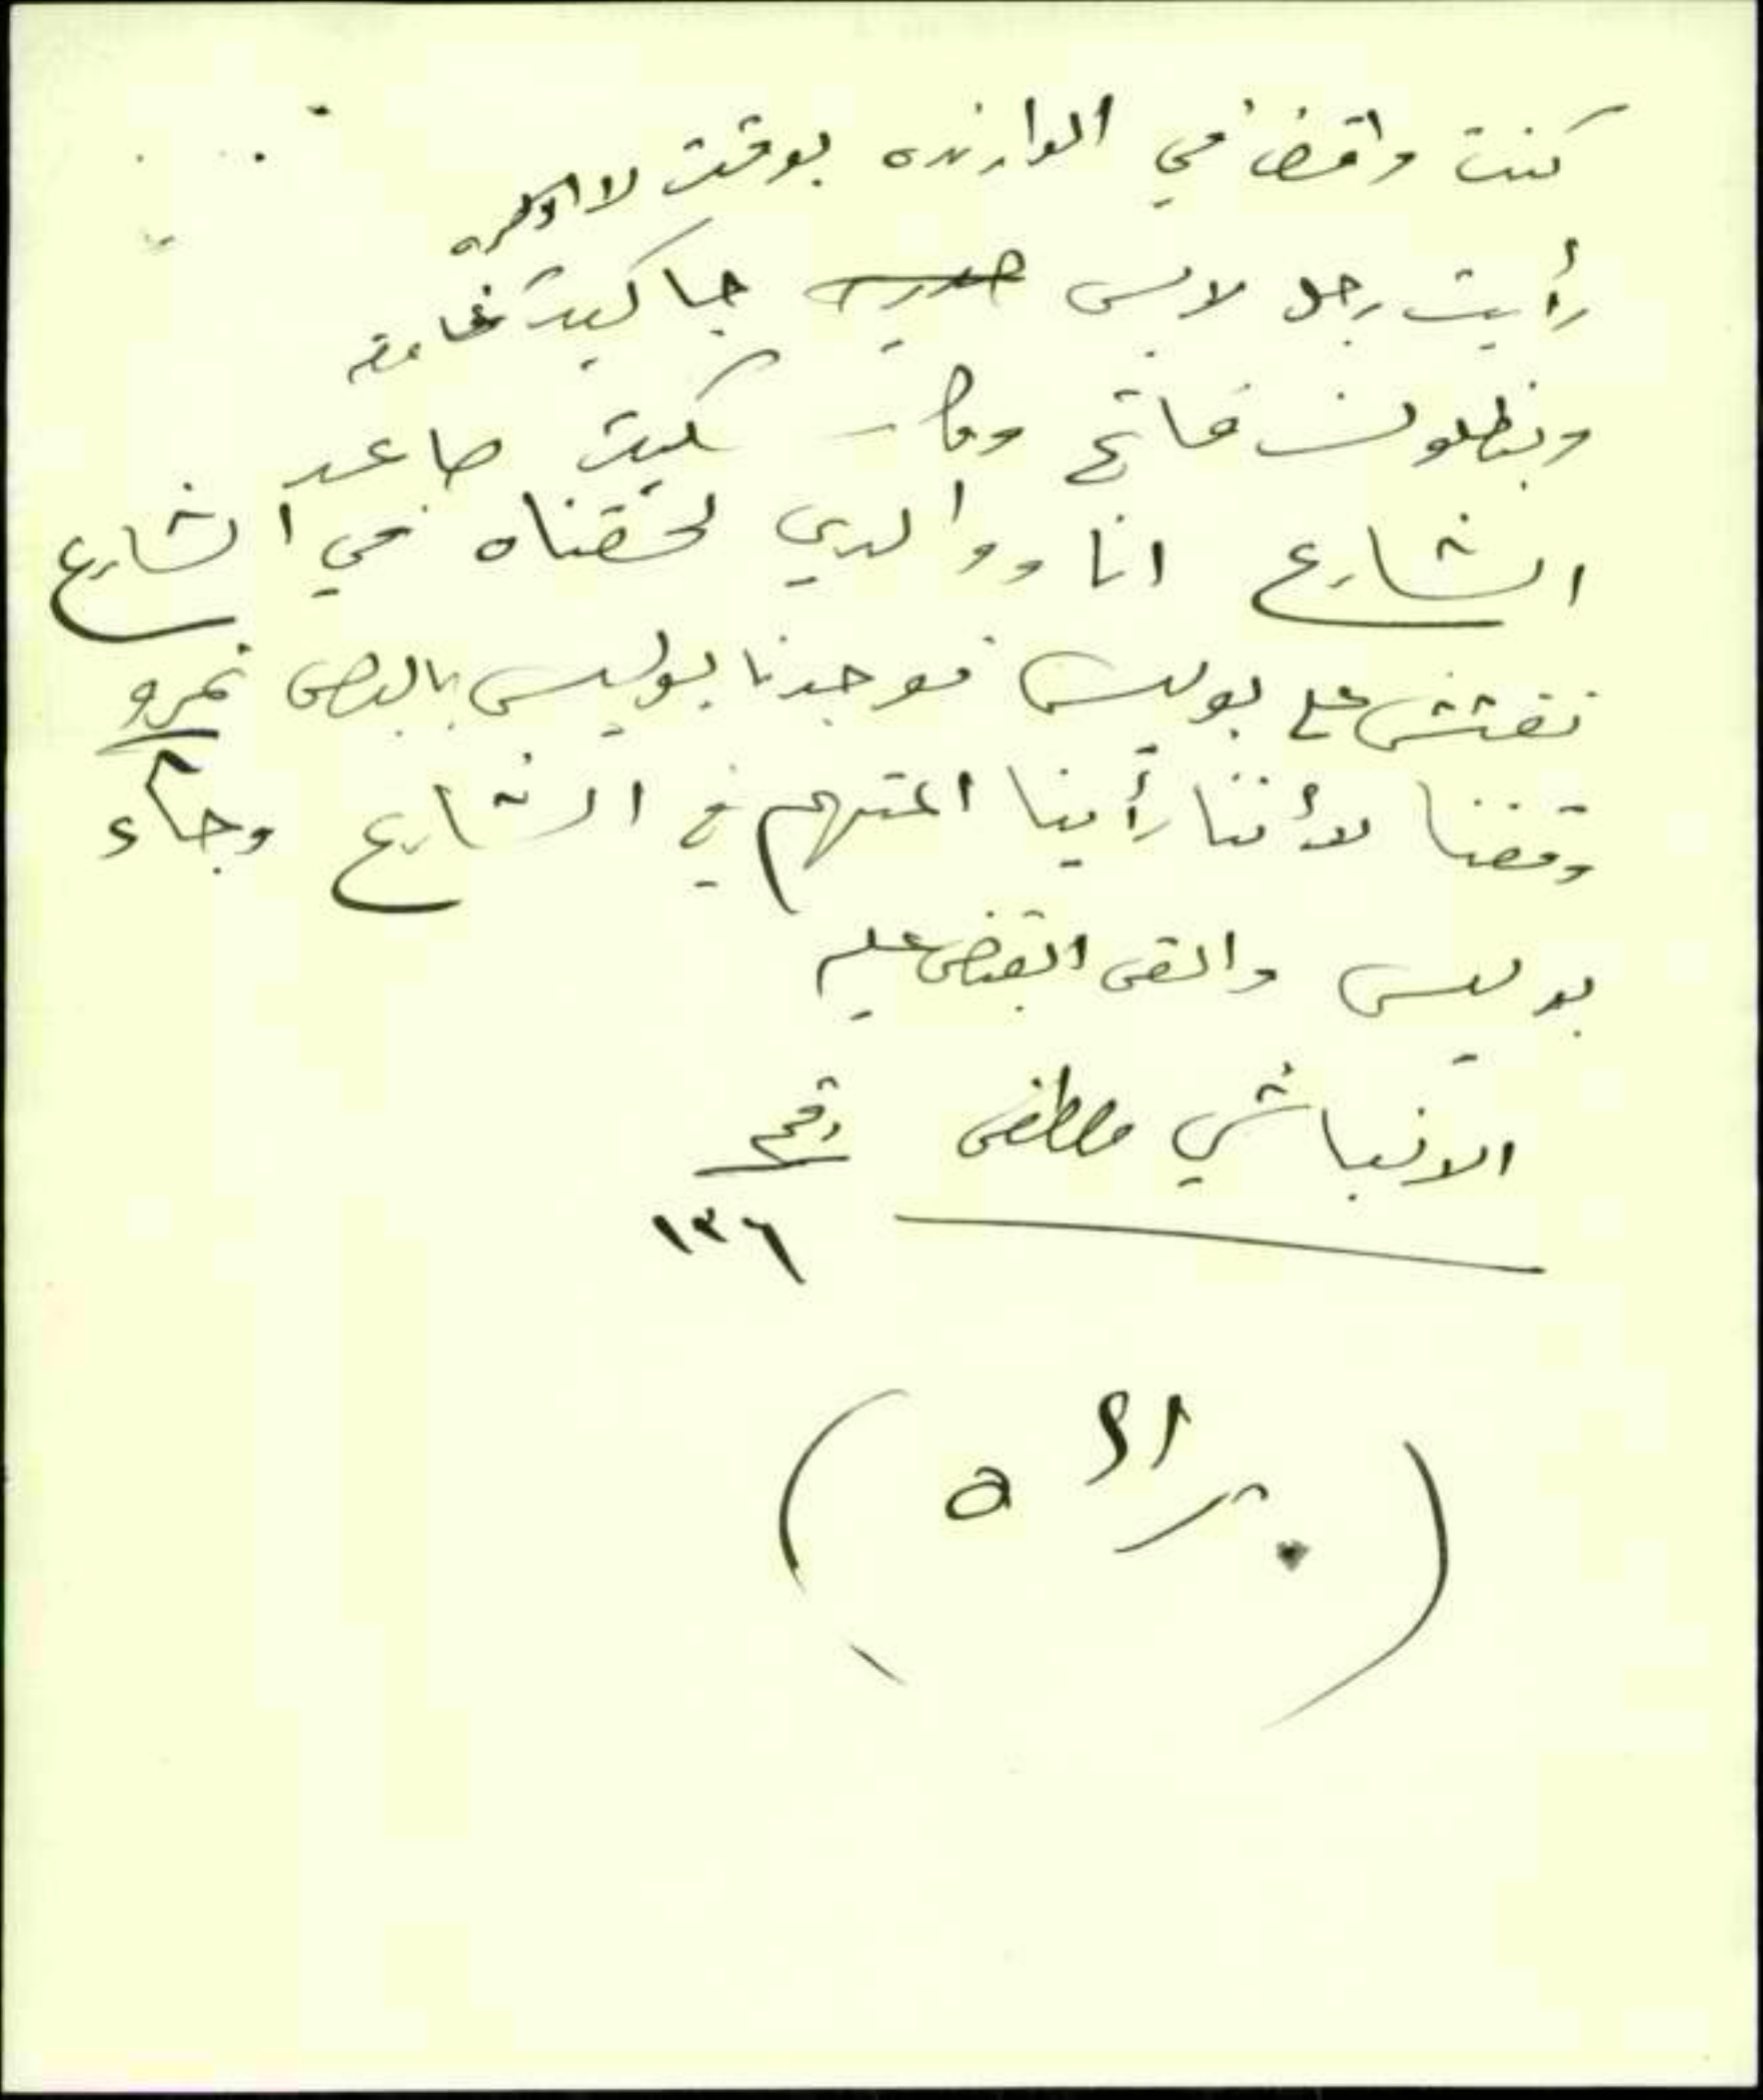 كنت واقف في الوارنده بوقت لا اذكره
رأيت رجل لابس جاكيت غامقه
وبنطلون فاتح وكان صاعد
الشارع انا ووالدي لحقناه في الشارع
نفتش على بوليس فوجدنا بوليس بالبص نمره
وقفنا لأننا رأينا المتهم في الشارع وجاء
بوليس والقى القبض عليه
الانباشي مصطفى رقم
١٣٦